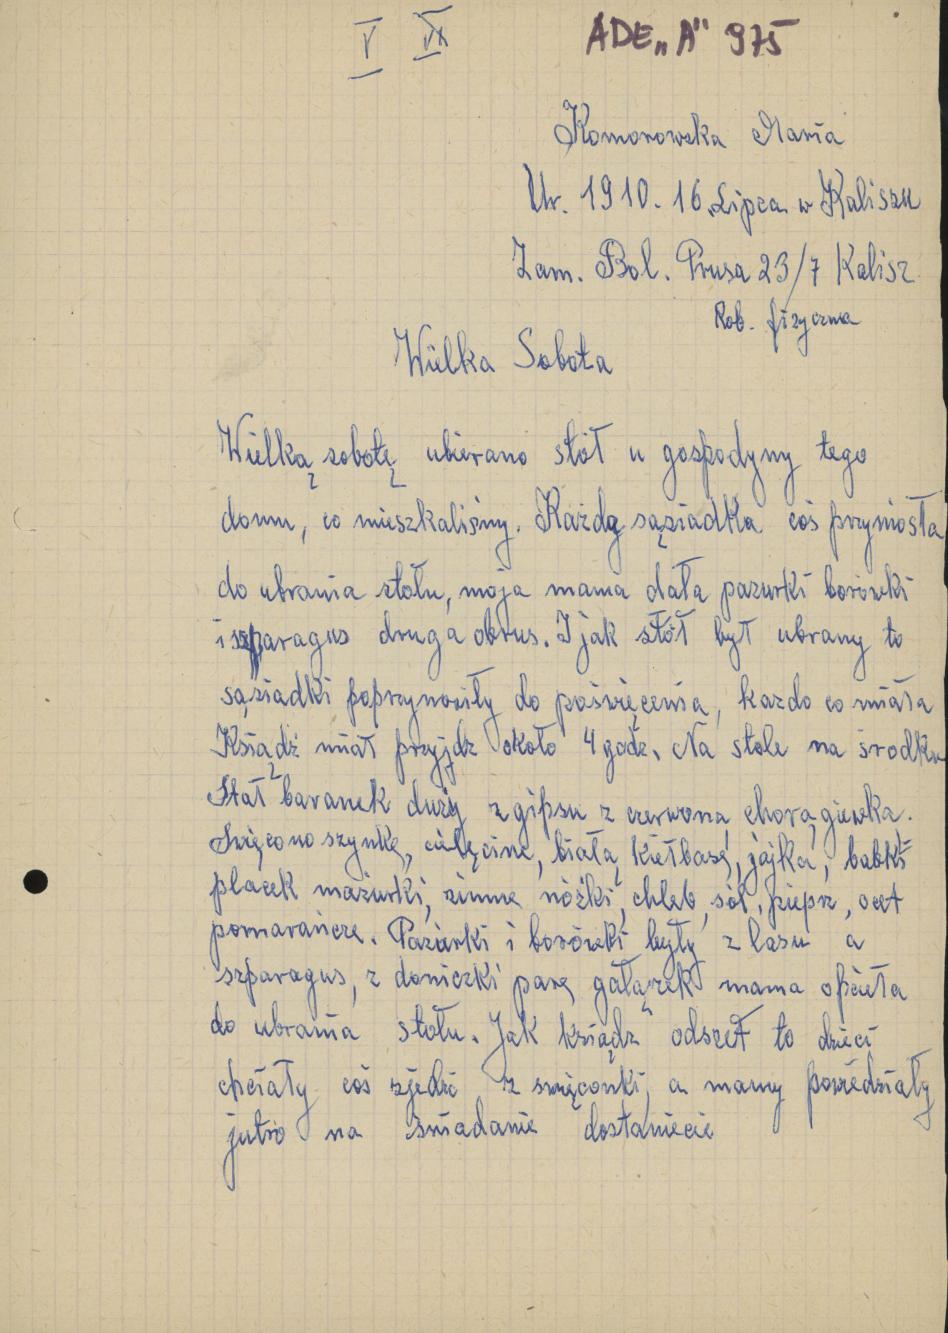 V VII
ADE „A" 975
Komorowska Maria
Ur. 1910. 16 Lipca w Kaliszu
Zam. Bol. Prusa 23/7 Kalisz
Rob. fizyczna
Wielka Sobota
Wielką sobotę ubierano stół u gospodyny tego
domu, co mieszkaliśmy. Każdą sąsiadka coś przyniosła
do ubrania stołu, moja mama dała pazurki borówki
i szparagus druga obrus. I jak stół był ubrany to
sąsiadki poprzynosiły do poświęcenia, kazdo co miała
Ksiądź miał przyjdz około 4 godz. Na stole na środku
Stał baranek duży z gipsu z czerwoną chorągiewka.
Święcono szynkę, cielęcine, białą kiełbasę, jajka, babki
placek mazurki, zimne nóżki, chleb, sól, pieprz, ocet
pomarańcze. Pazurki i borówki były z lasu a
szparagus, z doniczki parę gałązek mama opcieła
do ubrania stołu. Jak ksiądz odszeł to dzieci
chciały coś zjedść z święconki, a mamy powiedziały
jutro na śniadanie dostaniecie